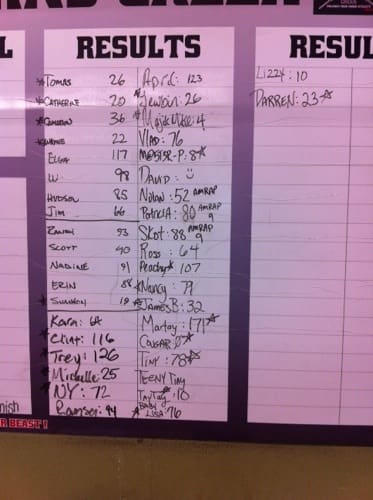 RESULTS
Tomas 26
Catherine 20
Cameron 36
22
Elga 117
W 98
Hudson 85
Jim 66
Randy 93
Scott 40
Nadine 91
Erin 88
Shannon 19
Kara: 64
Clint: 116
Trey: 126
Michelle: 25
NY: 72
Ramsey: 94
April: 123
Jewboi: 26
Majik Mike: 4
Vlad: 76
Meister-P: 8
David: ☺
Nolan: 52 AMRAP
Patricia: 80 AMRAP 9
Skot: 88 AMRAP 9
Ross: 64
Peachy 107
Nancy: 79
James B: 32
Martay: 171
Cougar 0
Tiny: 78
TEENY Tiny
TayTay: 10
Baby Lisa: 76
RESUL
Lizzy: 10
DARREN: 23
nish
R BEAST!